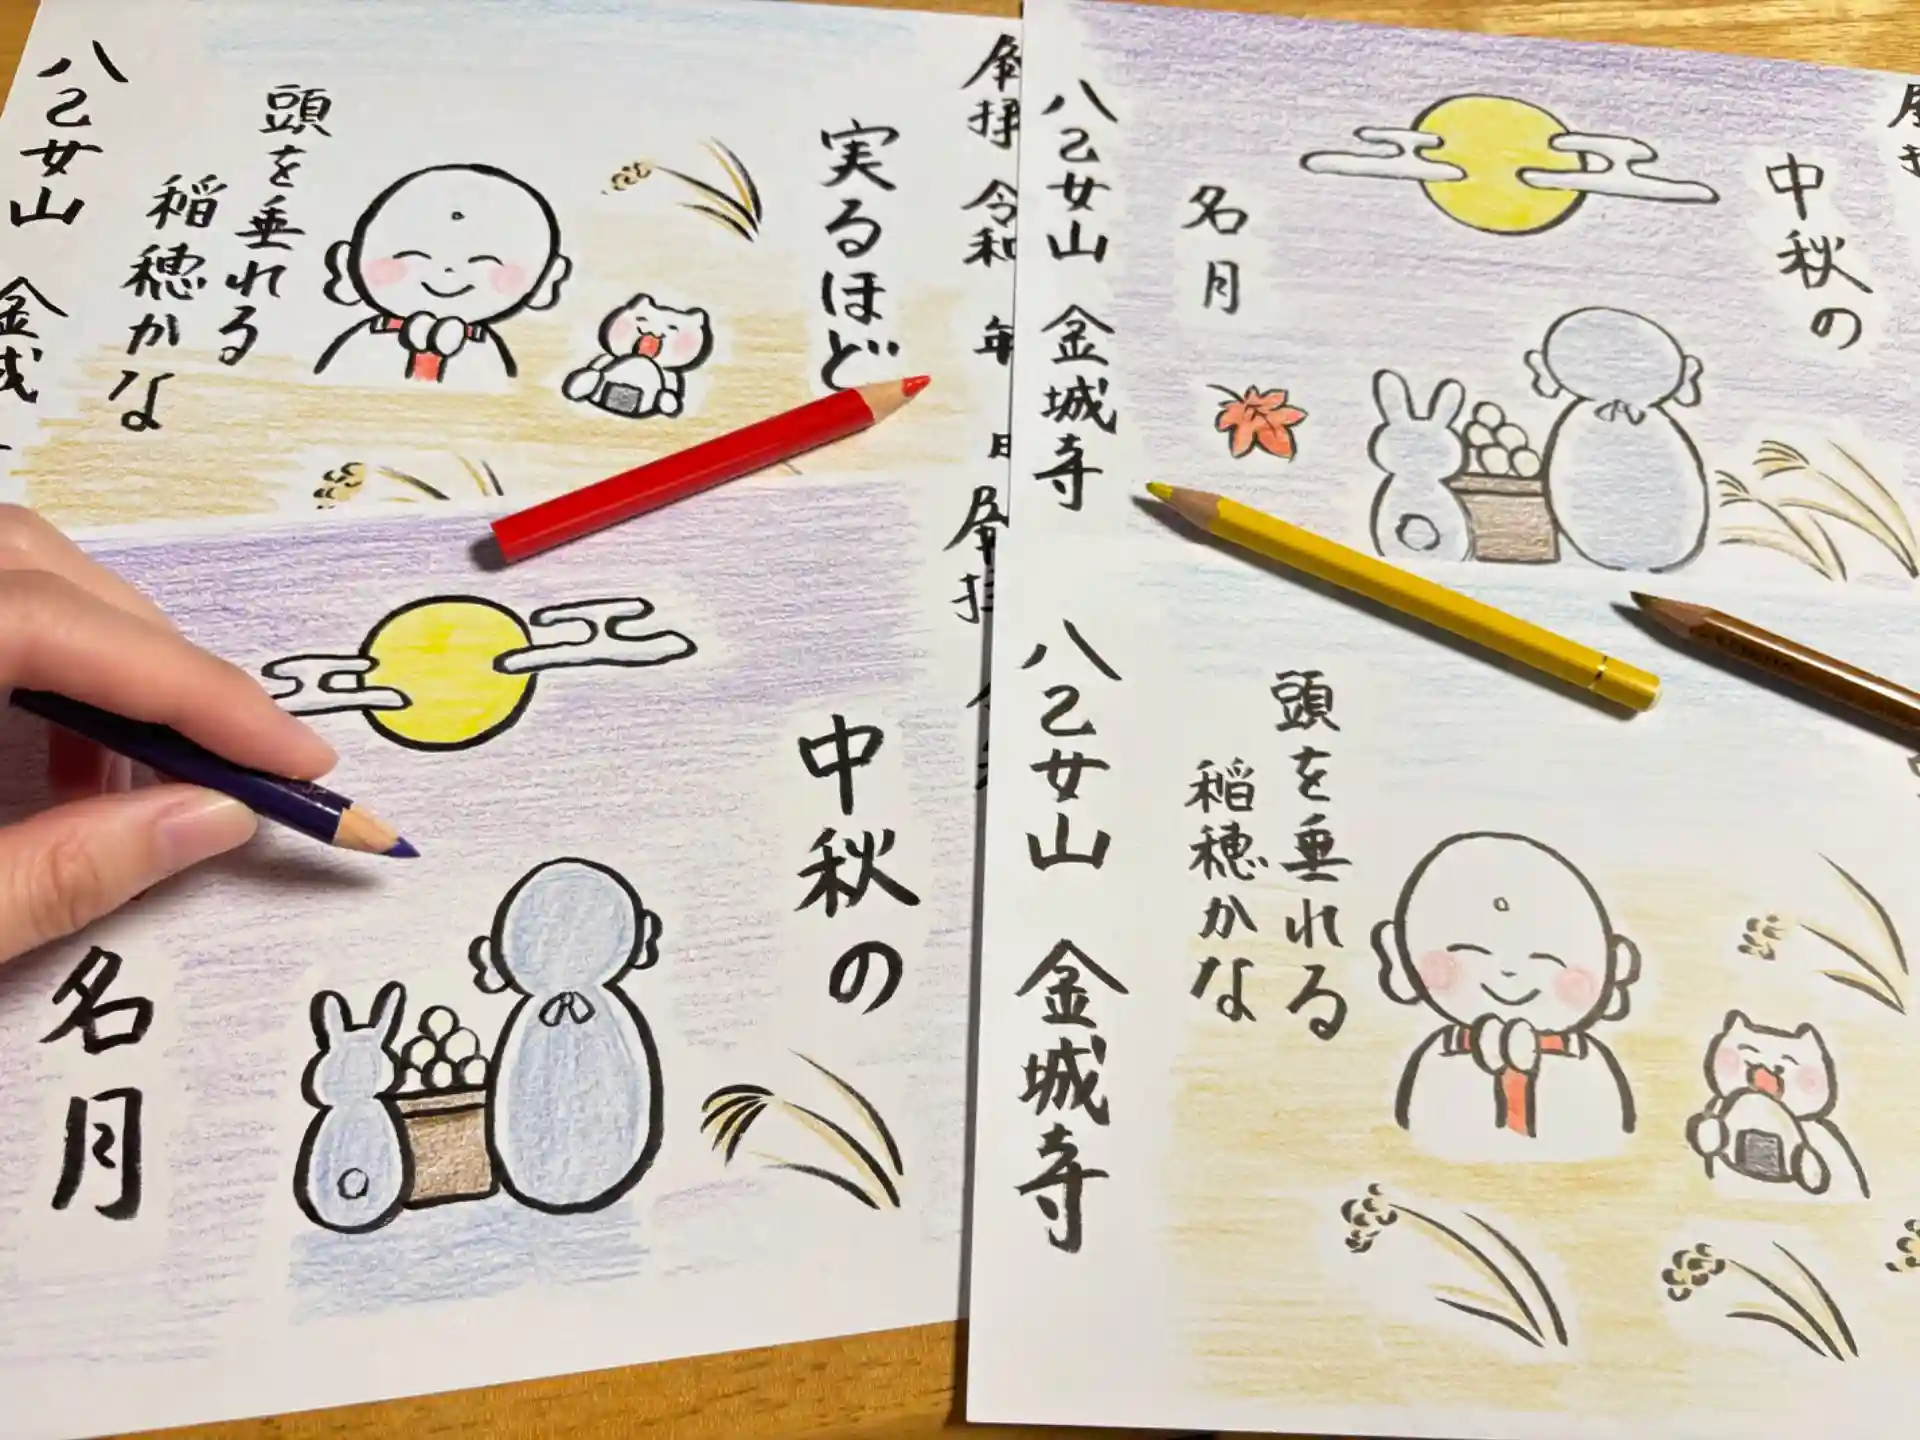 実るほど
頭を垂れる
稲穂かな
八乙女山 金城
拝
令和 年 日
中秋の
名月
八乙女山 金城寺
中秋の
名月
頭を垂れる
稲穂かな
八乙女山 金城寺